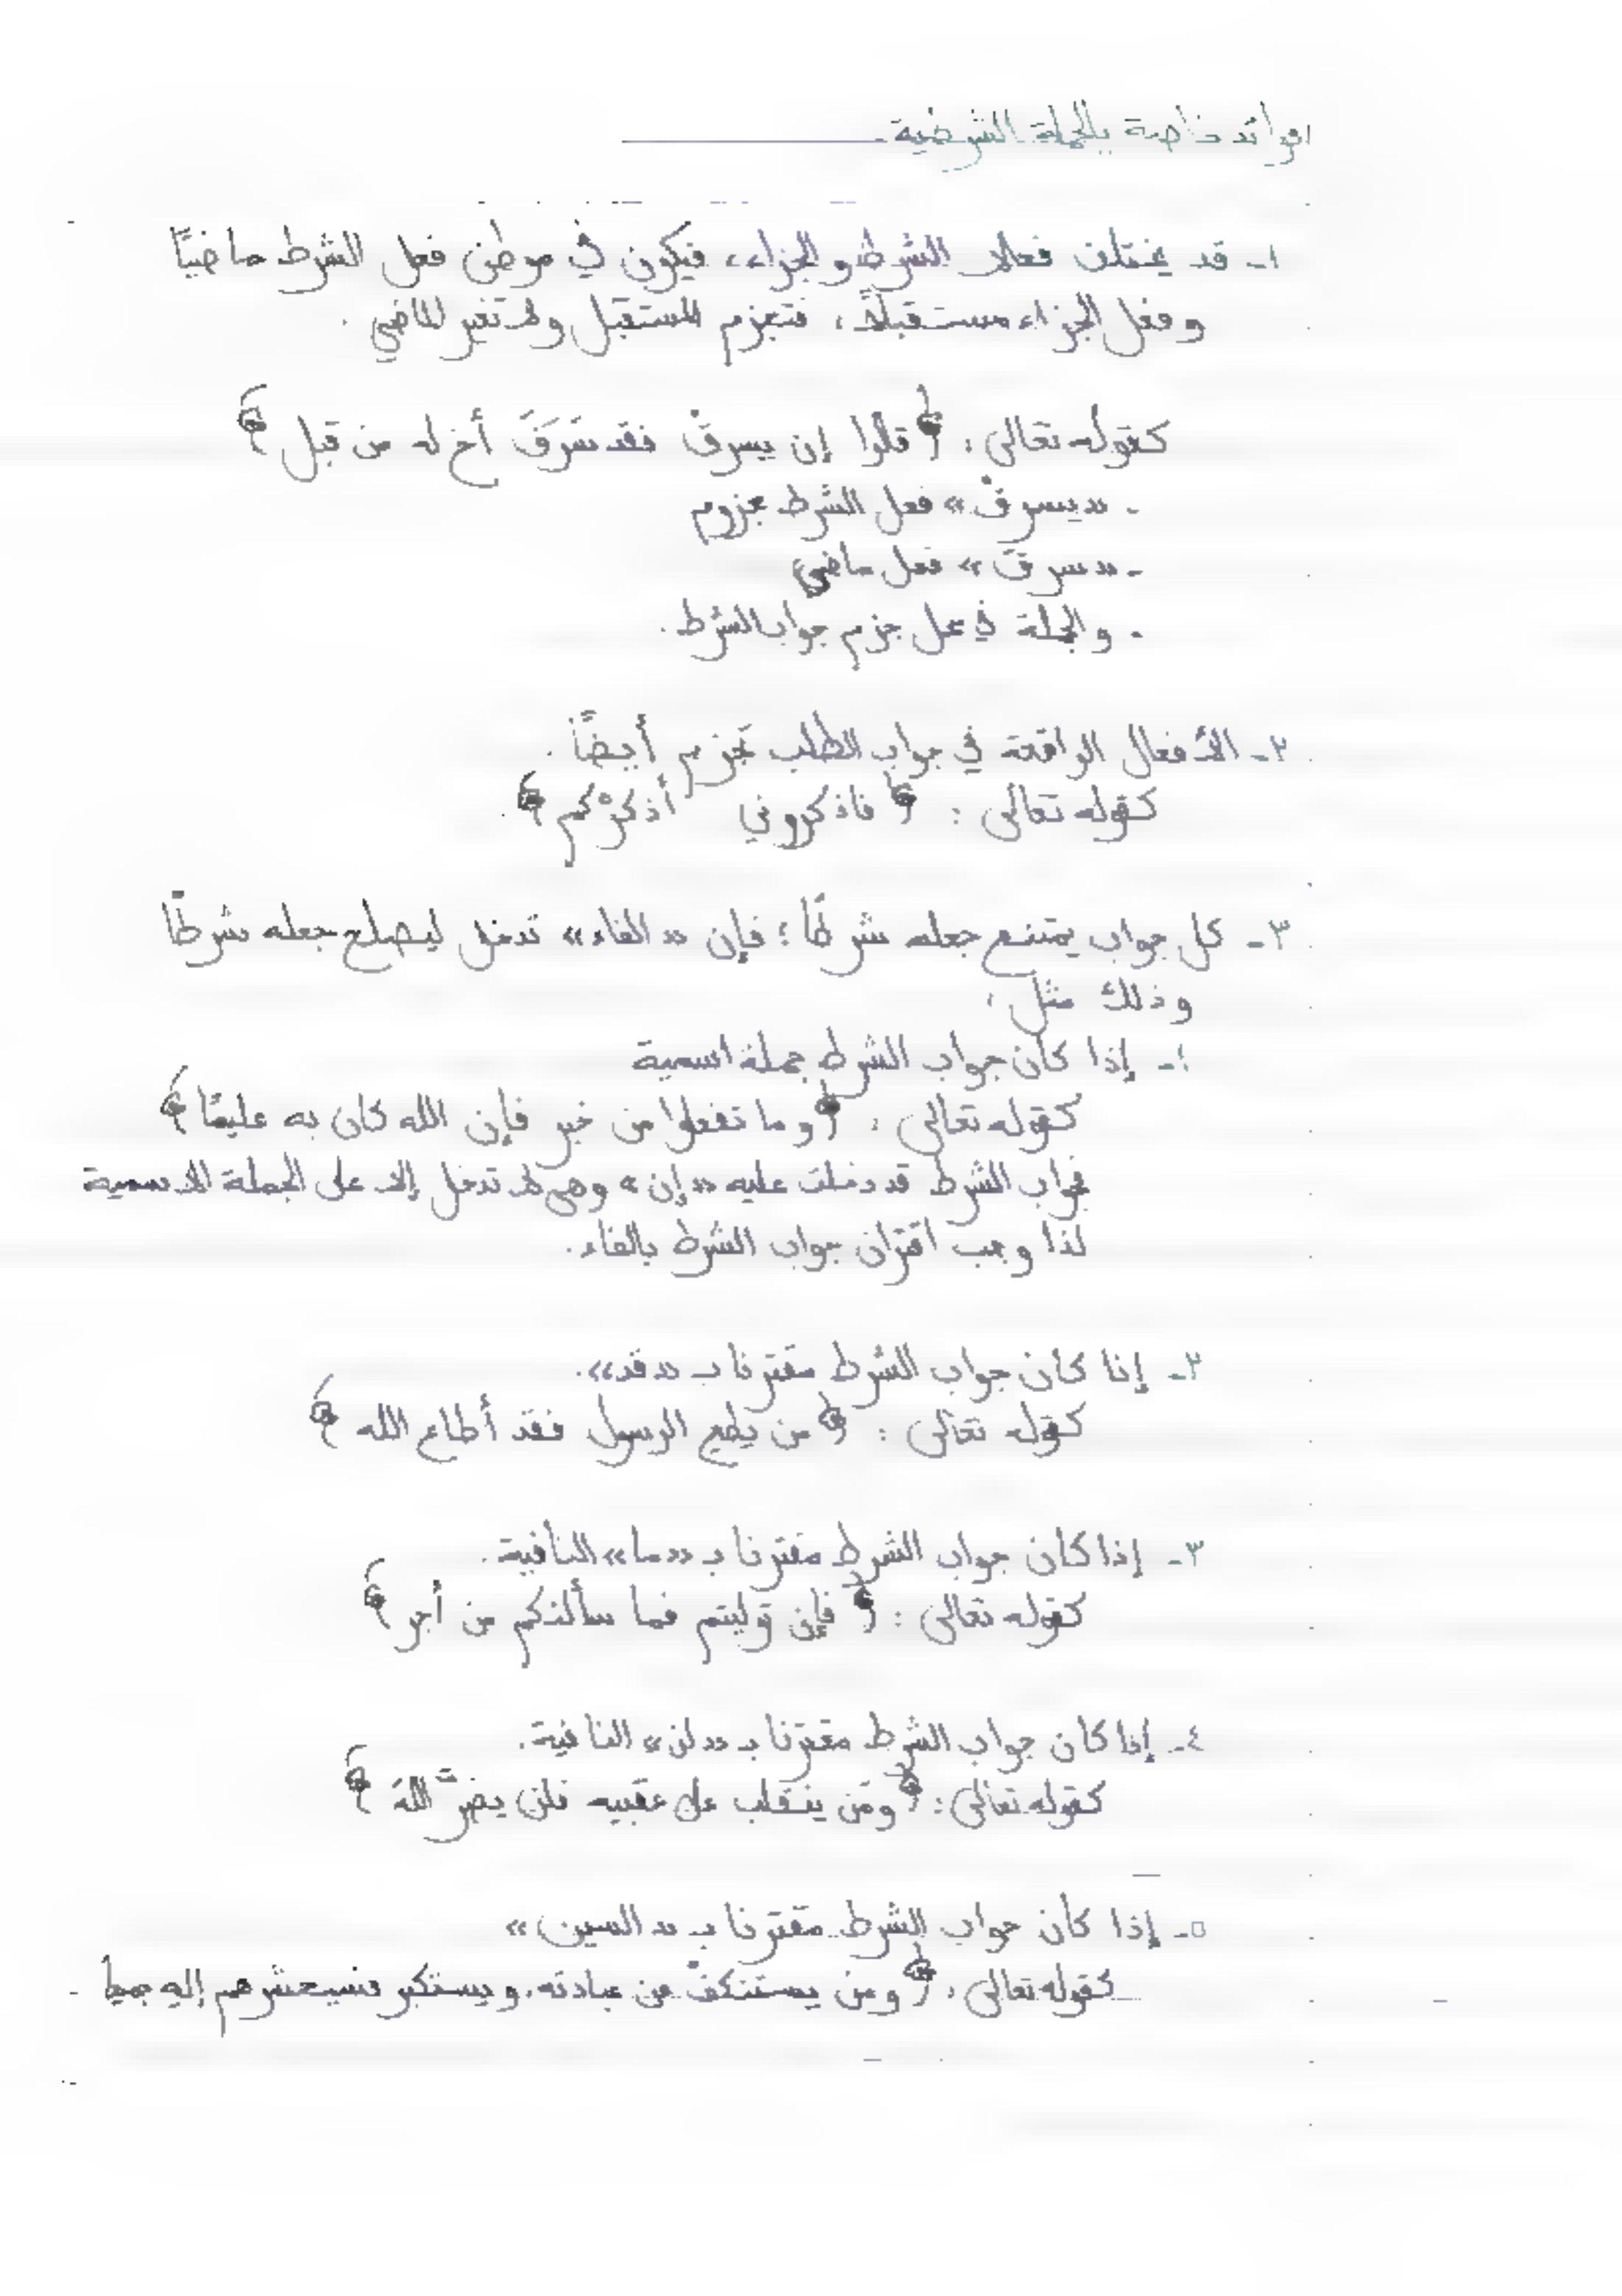 فوائد خاصة بالجملة الشرطية
١- قد يختلف فعلا الشرط والجزاء، فيكون في موطن فعل الشرط ماضيًا
وفعل الجزاء مستقبلًا، فتجزم المستقبل ولا تغير الماضي.
كقوله تعالى: ﴿قالوا إن يسرقْ فقد سَرَقَ أخ له من قبل﴾
- «يسرقْ» فعل الشرط مجزوم
- «سرقَ» فعل ماضي
- والجملة في محل جزم جواب الشرط.
٢- الأفعال الواقعة في جواب الطلب تجزم أيضًا.
كقوله تعالى: ﴿فاذكروني أذكرْكم﴾.
٣- كل جواب يمتنع جعله شرطًا؛ فإن «الفاء» تدخل ليصلح جعله شرطًا
وذلك مثل:
١- إذا كان جواب الشرط جملة اسمية
كقوله تعالى: ﴿وما تفعلوا من خير فإن الله كان به عليمًا﴾
فجواب الشرط قد دخلت عليه «إن» وهى لا تدخل إلا على الجملة الاسمية
لذا وجب اقتران جواب الشرط بالفاء.
٢- إذا كان جواب الشرط مقترنا بـ «قد».
كقوله تعالى: ﴿من يطع الرسول فقد أطاع الله﴾
٣- إذا كان جواب الشرط مقترنا بـ «ما» النافية.
كقوله تعالى: ﴿فإن توليتم فما سألتكم من أجر﴾
٤- إذا كان جواب الشرط مقترنا بـ «لن» النافية.
كقوله تعالى: ﴿ومَن ينقلب على عقبيه فلن يضرَّ اللهَ﴾
٥- إذا كان جواب الشرط مقترنا بـ «السين»
كقوله تعالى: ﴿ومَن يستنكفْ عن عبادته ويستكبر فسيحشرهم إليه جميعا